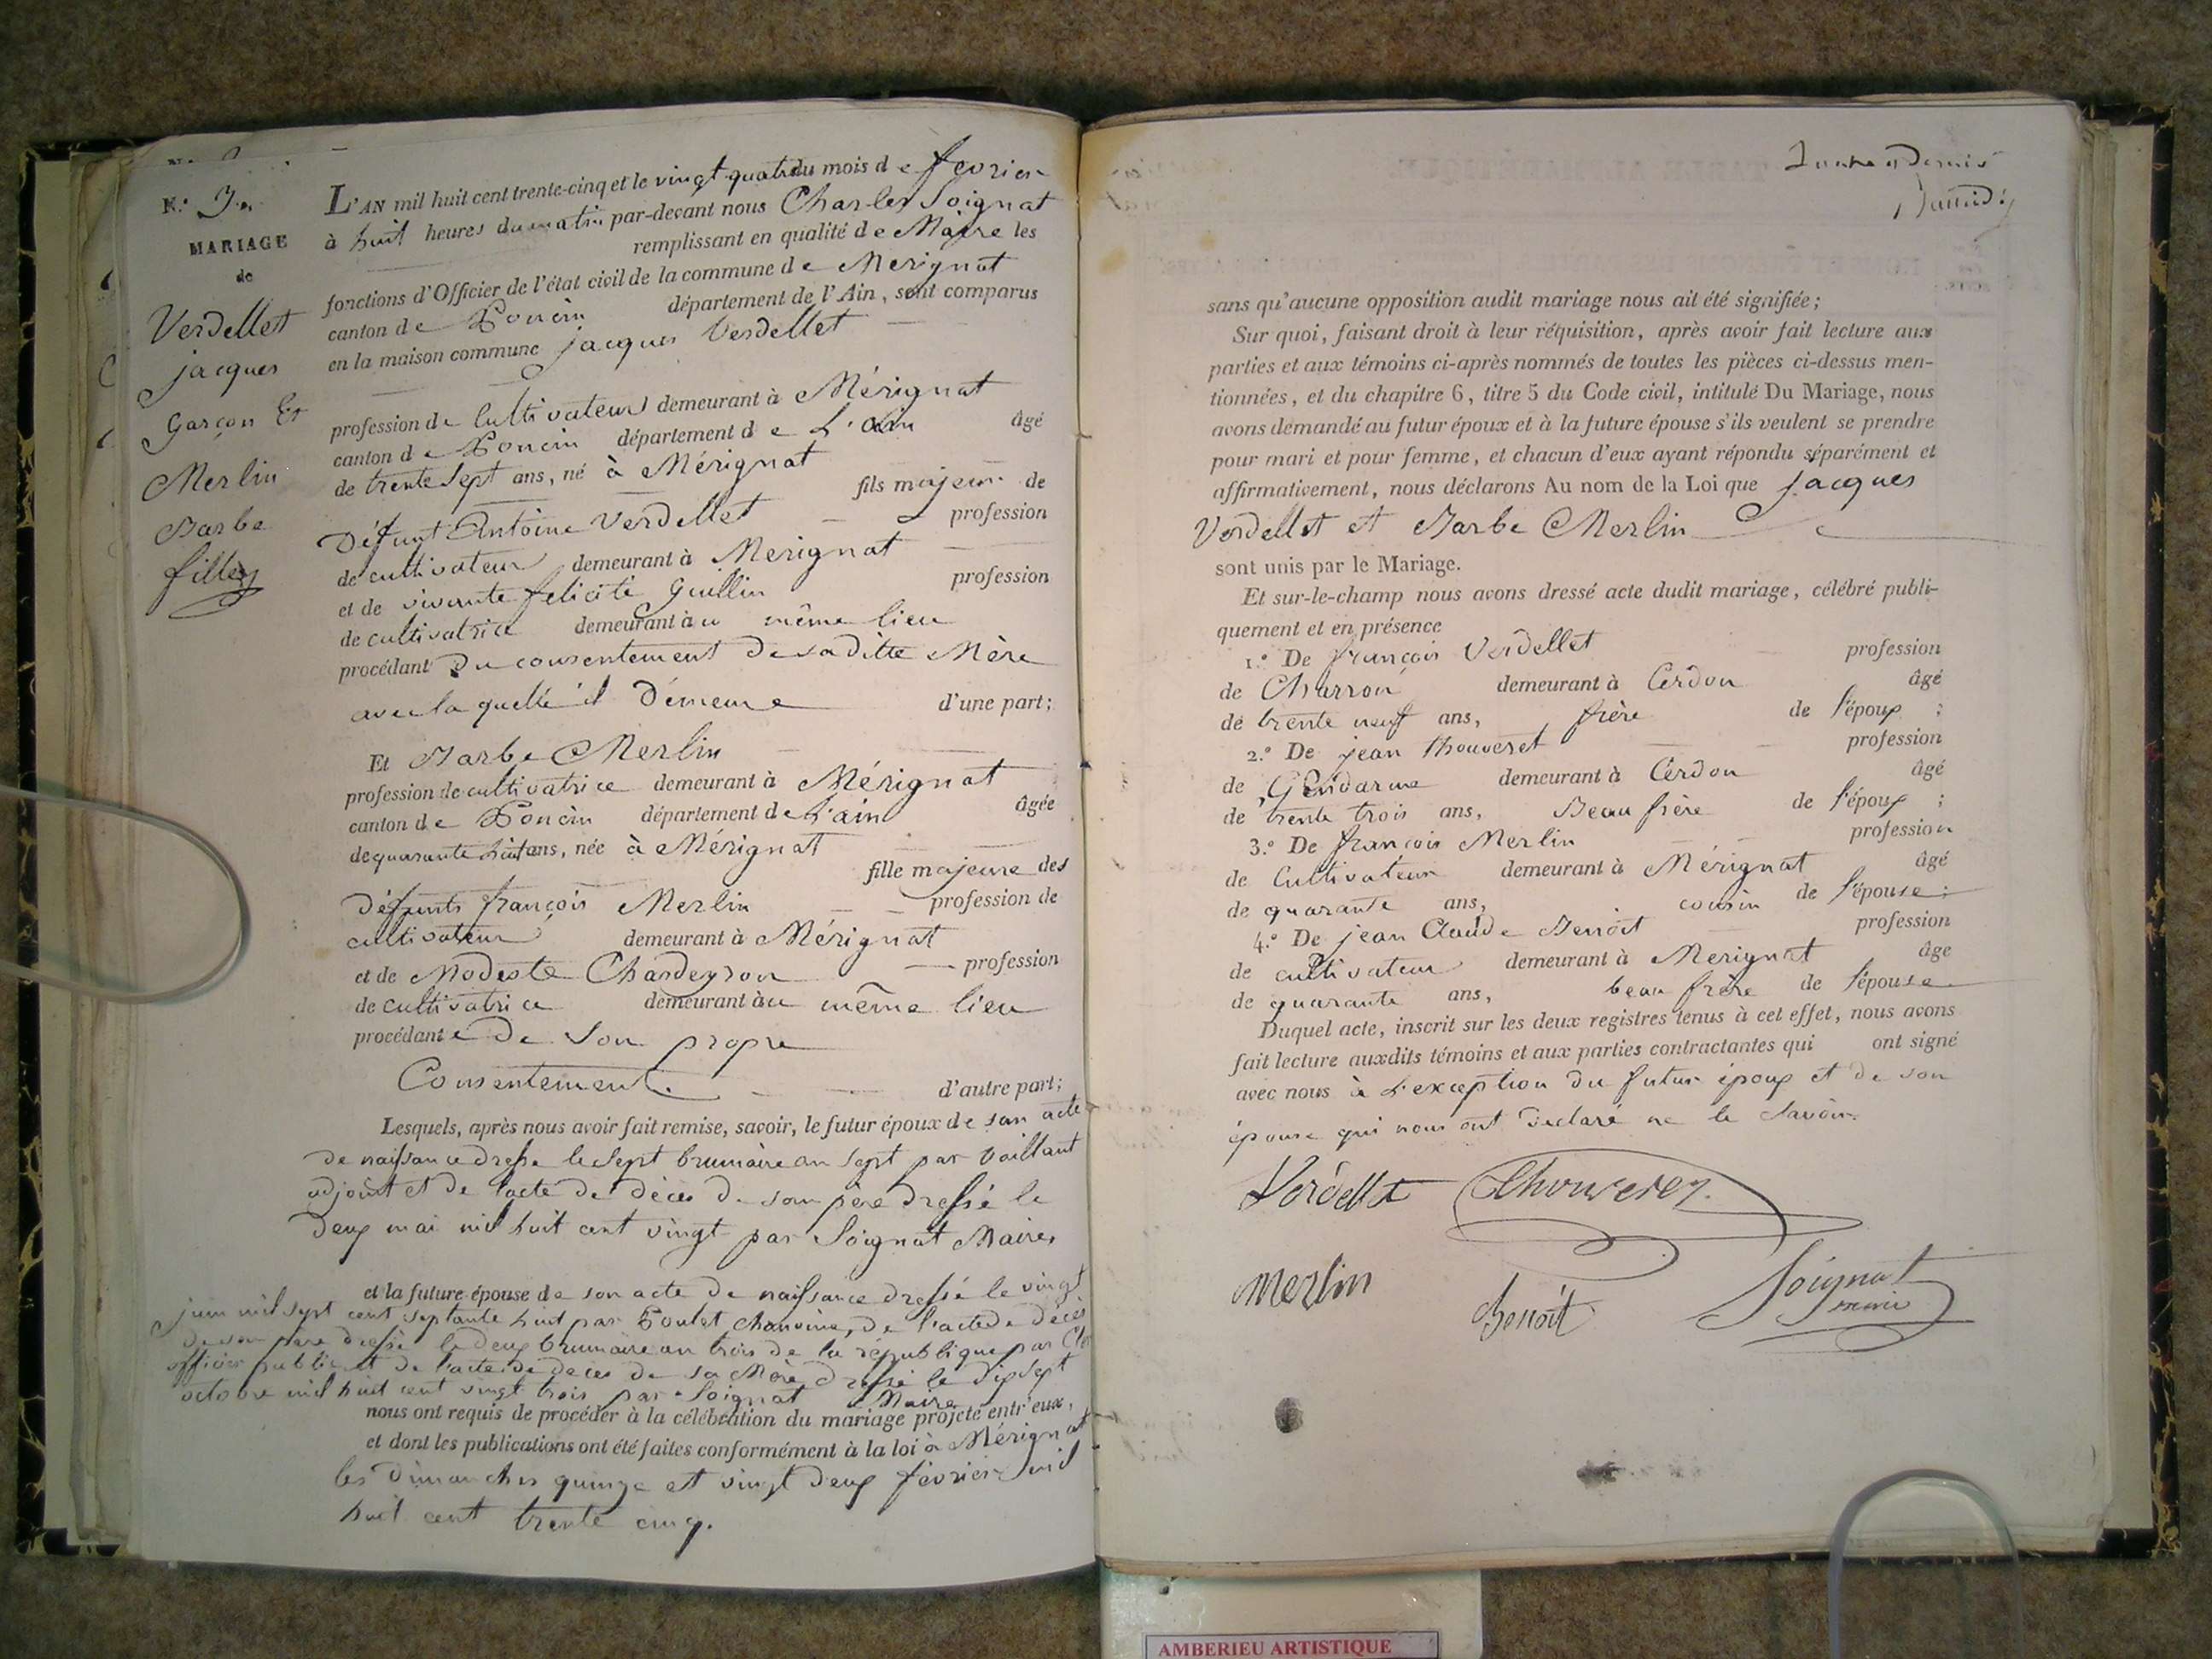 N.º
MARIAGE
de
Verdellet
jacques
Garçon Et
Merlin
Barbe
fille
L'AN mil huit cent trente-cinq et le vingt quatre du mois de fevrier
à huit heures du matin par-devant nous Charles Soignat
remplissant en qualité de Maire les
fonctions d'Officier de l'état civil de la commune de Merignat
canton de Poncin département de l'Ain, sont comparus
en la maison commune jacques Verdellet
profession de Cultivateur demeurant à Mérignat
canton de Poncin département de L'Ain âgé
de trente sept ans, né à Mérignat
fils majeur de
Défunt Antoine Verdellet profession
de cultivateur demeurant à Merignat
et de vivante felicité Guillin profession
de cultivatrice demeurant au même lieu
procédant du consentement de sa ditte Mère
avec la quelle il Démeure d'une part;
Et Barbe Merlin
profession de cultivatrice demeurant à Mérignat
canton de Poncin département de L'ain âgée
de quarante huit ans, née à Mérignat
fille majeure des
Défunts françois Merlin profession de
cultivateur demeurant à Mérignat
et de Modeste Chardeyron profession
de cultivatrice demeurant au même lieu
procédante de son propre
Consentement d'autre part;
Lesquels, après nous avoir fait remise, savoir, le futur époux de son acte
de naissance dressé le sept brumaire an sept par Vaillant
adjoint et de l'acte de décès de son père dressé le
deux mai mil huit cent vingt par Soignat Maire
et la future épouse de son acte de naissance dressé le vingt
juin mil sept cent septante huit par Poulet chanoine, de l'acte de décès
de son père dressé le deux brumaire an trois de la république par
officier public et de l'acte de décès de sa Mère dressé le dix sept
octobre mil huit cent vingt trois par Soignat Maire
nous ont requis de procéder à la célébration du mariage projeté entr'eux,
et dont les publications ont été faites conformément à la loi à Mérignat
les Dimanches quinze et vingt deux février mil
huit cent trente cinq.
sans qu'aucune opposition audit mariage nous ait été signifiée;
Sur quoi, faisant droit à leur réquisition, après avoir fait lecture aux
parties et aux témoins ci-après nommés de toutes les pièces ci-dessus men-
tionnées, et du chapitre 6, titre 5 du Code civil, intitulé Du Mariage, nous
avons demandé au futur époux et à la future épouse s'ils veulent se prendre
pour mari et pour femme, et chacun d'eux ayant répondu séparément et
affirmativement, nous déclarons Au nom de la Loi que jacques
Verdellet et Barbe Merlin
sont unis par le Mariage.
Et sur-le-champ nous avons dressé acte dudit mariage, célébré publi-
quement et en présence
1.º De françois Verdellet profession
de Charron demeurant à Cerdon âgé
de trente neuf ans, frère de l'époux;
2.º De jean thouveret profession
de Gendarme demeurant à Cerdon âgé
de trente trois ans, Beau frère de l'époux;
3.º De françois Merlin profession
de Cultivateur demeurant à Mérignat âgé
de quarante ans, cousin de l'épouse;
4.º De jean Claude Benoit profession
de cultivateur demeurant à Merignat âge
de quarante ans, beau frère de l'épouse
Duquel acte, inscrit sur les deux registres tenus à cet effet, nous avons
fait lecture auxdits témoins et aux parties contractantes qui ont signé
avec nous à L'exception du futur époux et de son
épouse qui nous ont declaré ne le savoir.
Verdellet Thouverez
Merlin Benoit Soignat
maire
AMBERIEU ARTISTIQUE